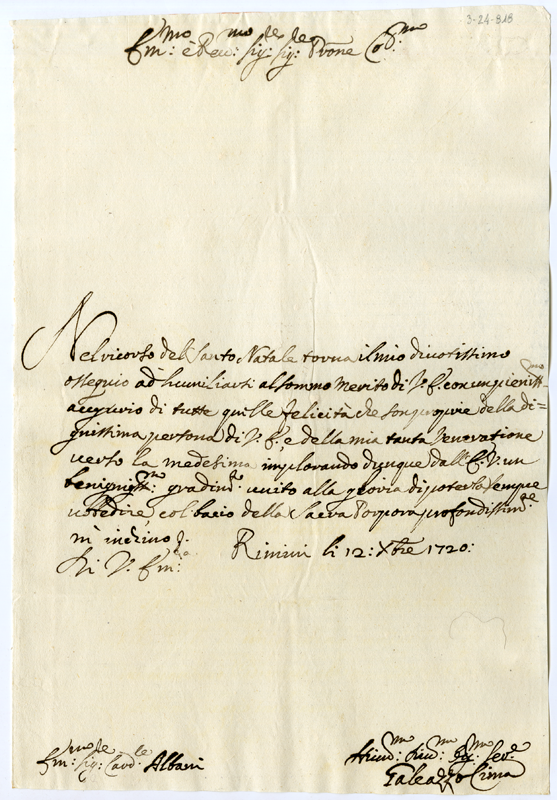 3-24-818
Em:mo e Reu:mo Sig:re Sig:re Prone Co:mo
Nel ricorso del Santo Natale torna il mio diuotissimo
ossequio ad humiliarsi al sommo merito di V. E. con un pieniss:mo
augurio di tutte quelle felicità che son proprie della di=
gnissima persona di V. E., e della mia tanta Veneratione
uerso la medesima implorando dunque dall' E. V. un
benigniss:mo gradim:to unito alla gloria di poterla sempre
ubbedire, col bacio della Sacra Porpora profondissim:te
m' inchino
Di V. Em:za Rimini li 12: Xbre 1720:
Em:mo Sig:re Card:le Albani
Humil:mo Diu:mo Ser:e
Galeazzo Cima